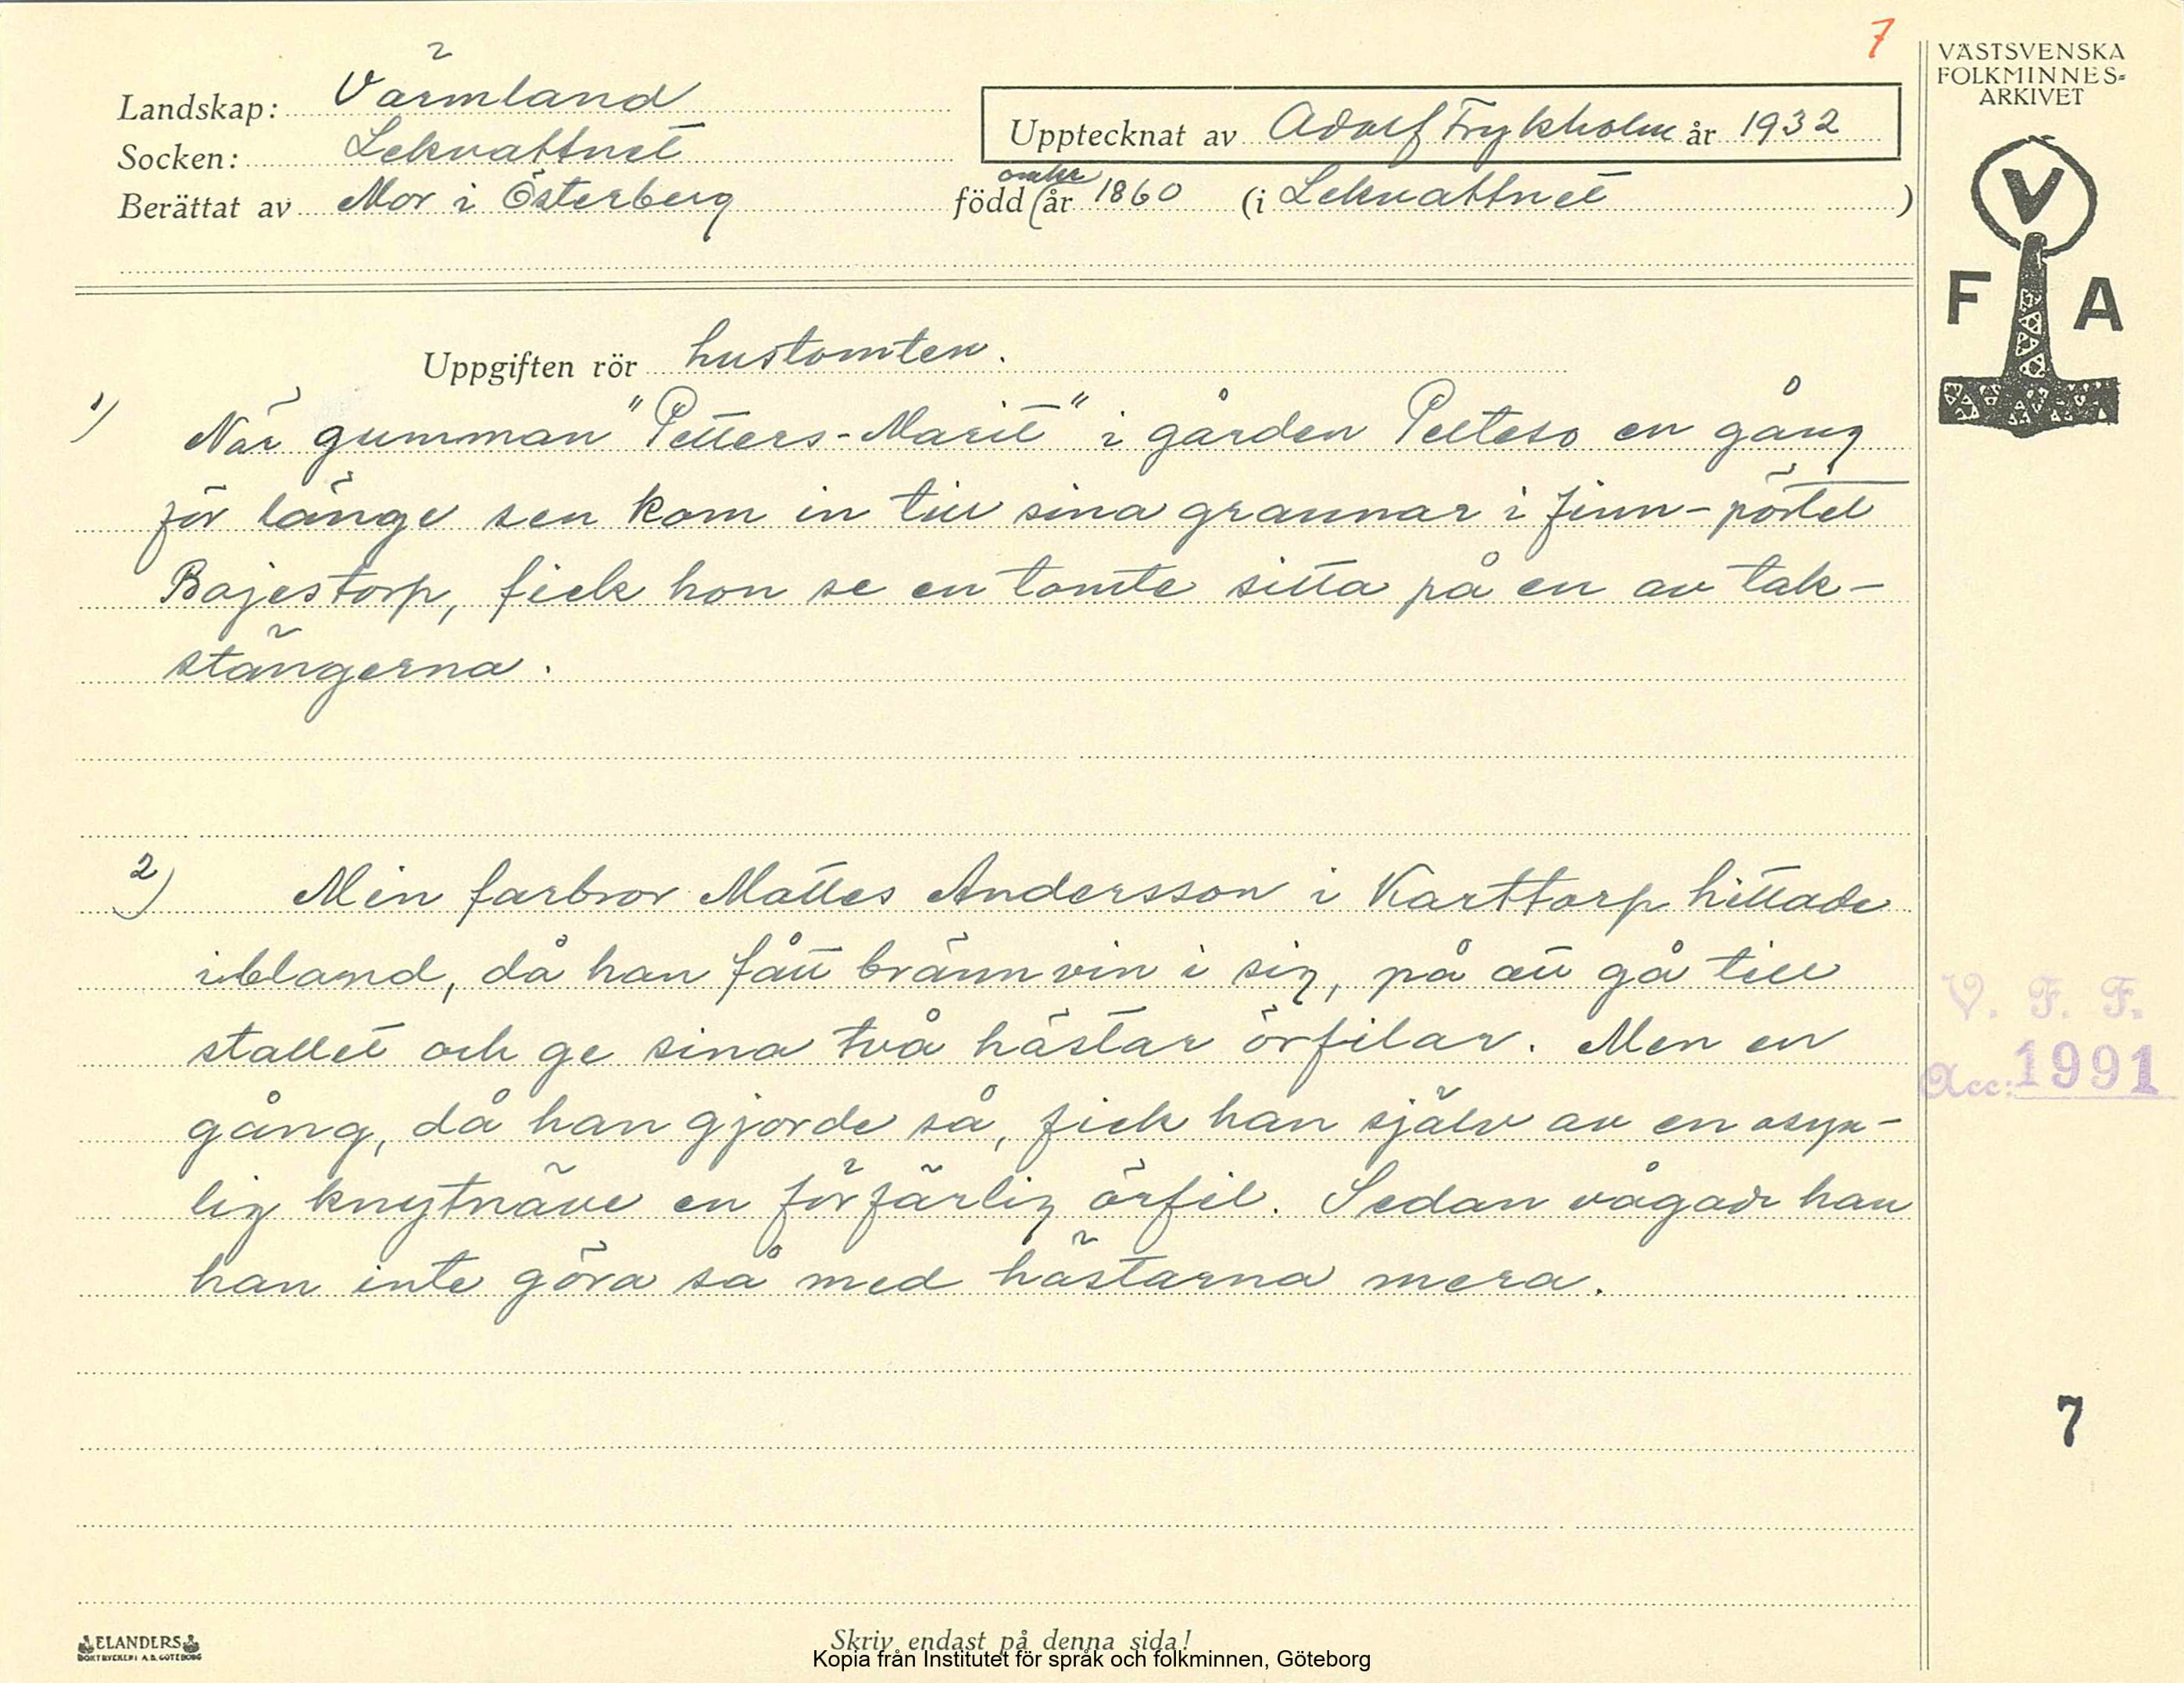 7
VÄSTSVENSKA
FOLKMINNES-
ARKIVET
Landskap: Värmland
Upptecknat av Adolf Frykholm år 1932
Socken: Lekvattnet
Berättat av Mor i Österberg född (omkr år 1860 (i Lekvattnet )
V
F A
Uppgiften rör hustomten.
1) När gumman "Petters-Marit" i gården Petteso en gång
för länge sen kom in till sina grannar i finn-pörtet
Bajestorp, fick hon se en tomte sitta på en av tak-
stängerna.
2) Min farbror Mattes Andersson i Karttorp hittade
ibland, då han fått brännvin i sig, på att gå till
stallet och ge sina två hästar örfilar. Men en
gång, då han gjorde så, fick han själv av en osyn-
lig knytnäve en förfärlig örfil. Sedan vågade han
han inte göra så med hästarna mera.
V. F. F.
Acc: 1991
7
ELANDERS
BOKTRYCKERI A.B. GÖTEBORG
Skriv endast på denna sida!
Kopia från Institutet för språk och folkminnen, Göteborg